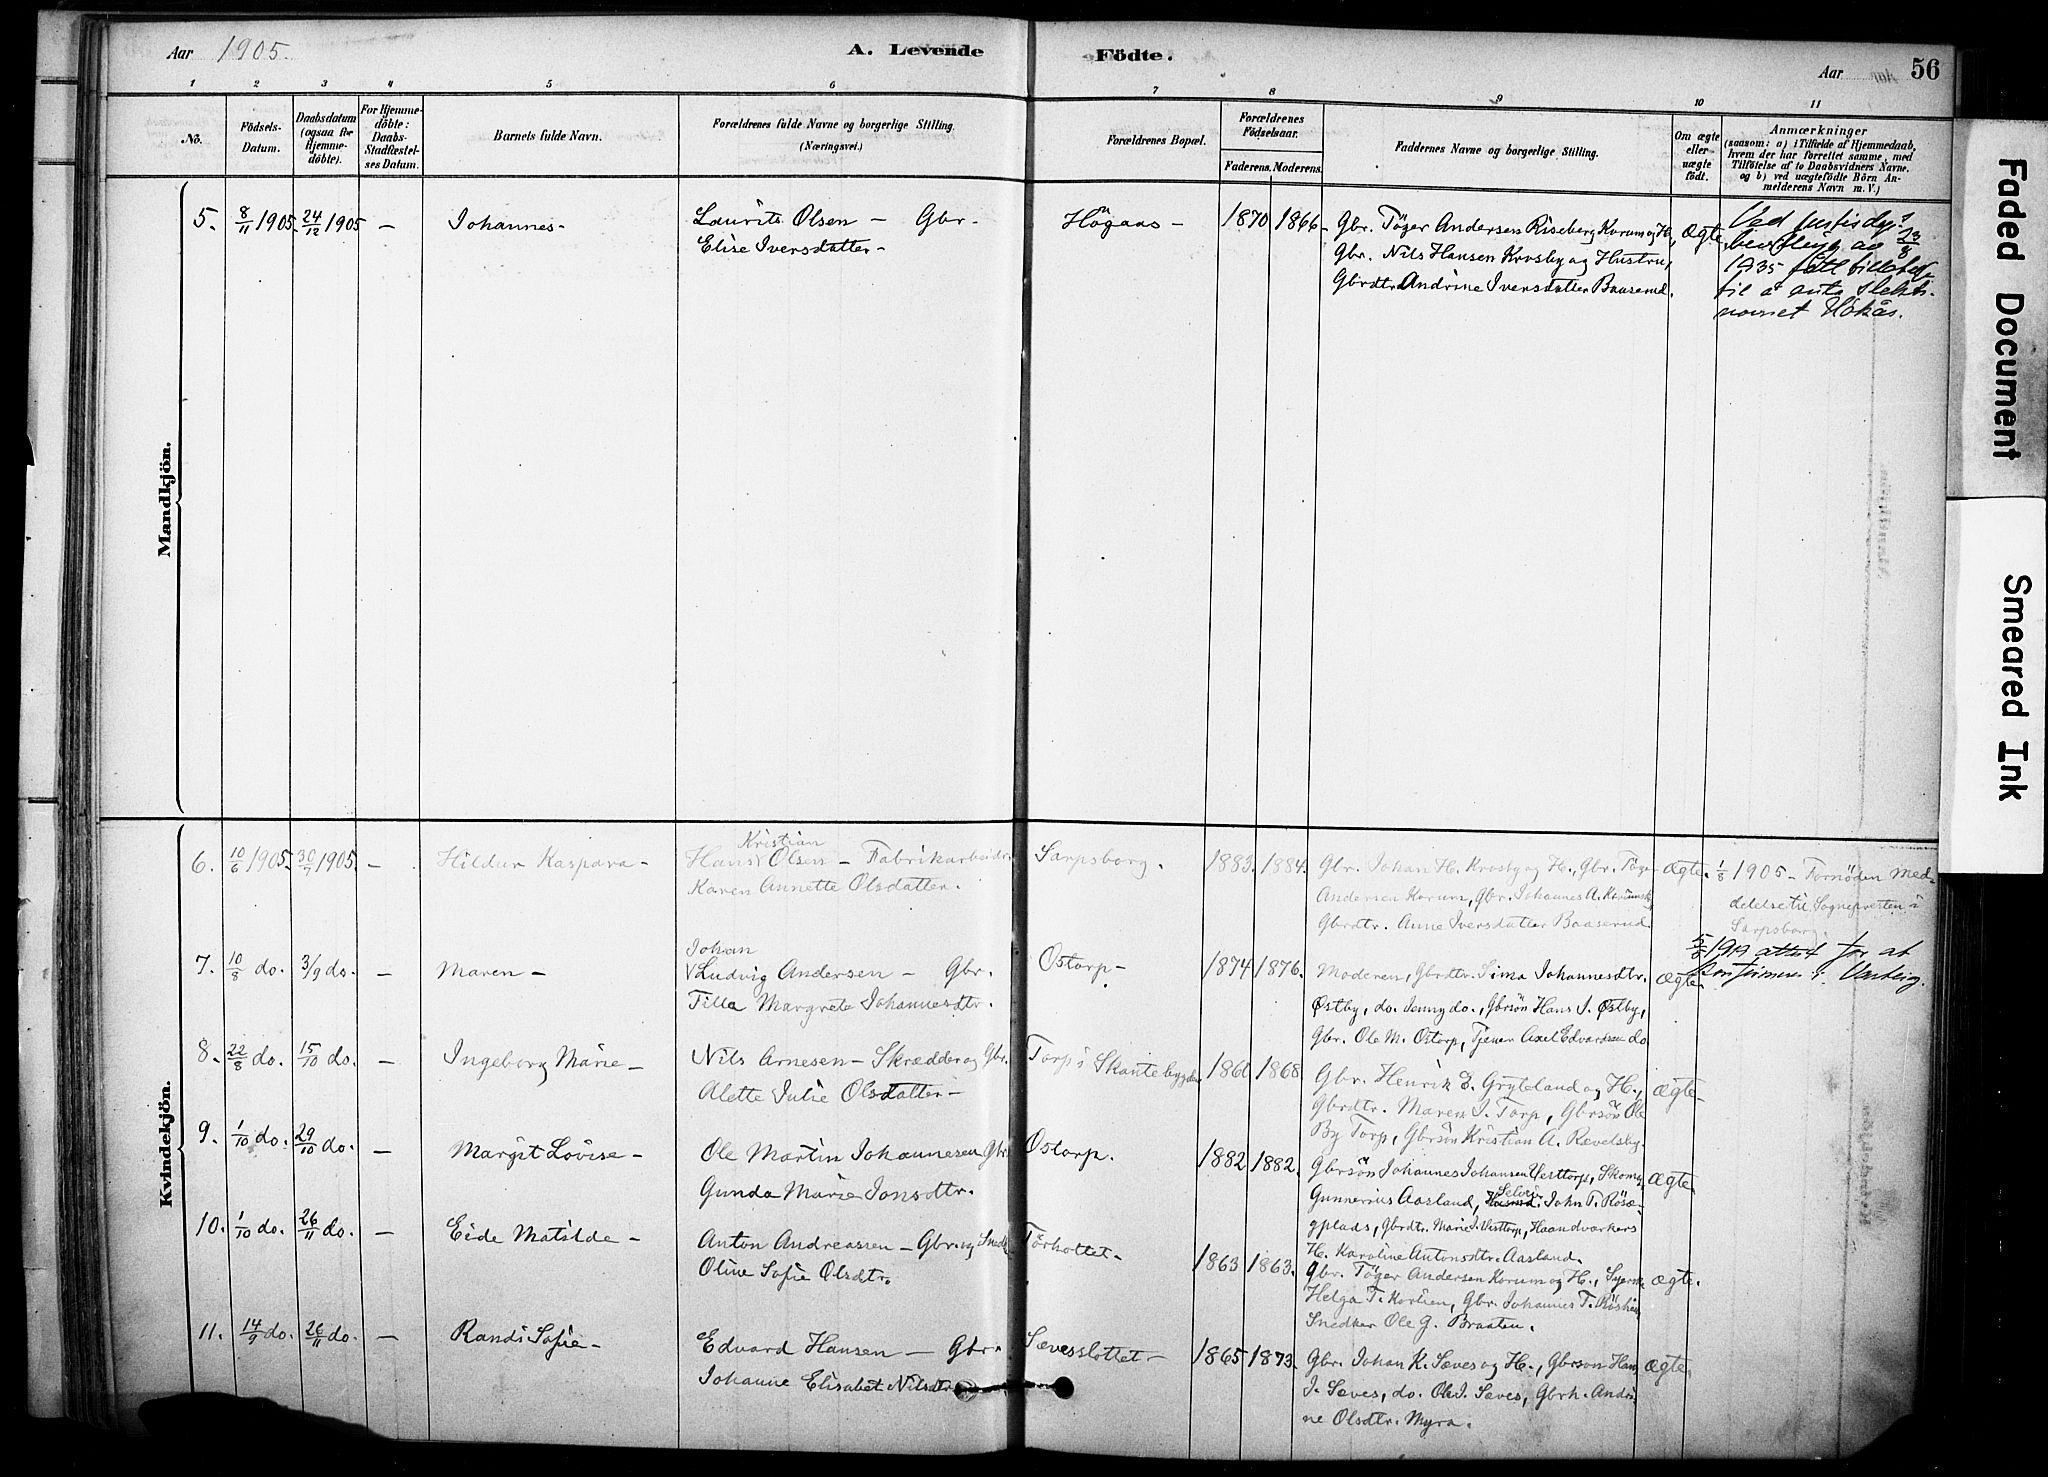 Aar 1905. A. Levende Födte. Aar 56
1 2 3 4 5 6 7 8 9 10 11
No. Födsels-Datum. Daabsdatum (ogsaa for Hjemmedöbte). For Hjemmedöbte: Daabs-Stadfæstelses Datum. Barnets fulde Navn. Forældrenes fulde Navne og borgerlige Stilling. (Næringsvei.) Forældrenes Bopæl. Forældrenes Födselsaar. Faderens. Moderens. Faddernes Navne og borgerlige Stilling. Om ægte eller uægte födt. Anmærkninger (saasom: a) i Tilfælde af Hjemmedaab, hvem der har forrettet samme, med Tilföielse af to Daabsvidners Navne, og b) ved uægtefödte Börn Anmelderens Navn m. V.)
Mandkjön.
5. 8/11 1905. 24/12 1905 — Johannes — Laurits Olsen — Gbr. Högaas — 1870 1866 — Gbr. Töger Andersen Riseberg Korum og H., Ægte. Ved
Elise Iversdatter — Gbr. Nils Hansen Krosby og Hustru, 23/8
Gbrdtr. Andrine Iversdatter Baaserud. 1935 fått
til å anta slekts-
navnet Håkås.
Kvindekjön.
Kristian
6. 10/6 1905. 30/7 1905. — Hildur Kaspara — Hans Olsen — Fabrikarbeidr. Sarpsborg. 1883. 1884. Gbr. Johan H. Krosby og H., Gbr. Töger Ægte. 1/8 1905 — Fornöden Med-
Karen Annette Olsdatter. Andersen Korum, Gbr. Johannes A. delelse til Sognepresten i
Gbrdtr. Anne Iversdatter Baaserud. Sarpsborg.
Johan
7. 10/8 do. 3/9 do. — Maren — Ludvig Andersen — Gbr. Ostorp — 1874 1876. Moderen, Gbrdtr. Sima Johannesdtr. Ægte. 1919 attest for at
Tilla Margrete Johannesdtr. Østby, do. Jenny do., Gbrsön Hans J. Østby,
Gbr. Ole M. Ostorp, Tjener Axel Edvardsen do
8. 22/8 do. 15/10 do. — Ingeborg Marie — Nils Arnesen — Skrædder og Gbr. Torp i Skantebygden 1868 Gbr. Henrik E. Gryteland og H., Ægte —
Alette Julie Olsdatter — Gbrdtr. Maren J. Torp, Gbrsön Ole
By Torp, Gbrsön Kristian A. Revelsby.
9. 1/10 do. 29/10 do. — Margit Lovise — Ole Martin Johannesen Gbr. Ostorp. 1882 1882. Gbrsön Johannes Johansen Vesttorp, Skom. Ægte.
Gunda Marie Jonsdtr. Gunnerius Aasland, Selvei. John T. Röse-
gplads, Gbrdtr. Marie J. Vesttorp, Haandværkers
H. Karoline Antonsdtr. Aasland.
10. 1/10 do. 26/11 do. — Eide Matilde — Anton Andreassen — Gbr. og Snedk. Torkottet — 1863 1863. Gbr. Töger Andersen Korum og H., Ægte.
Oline Sofie Olsdtr. Helga T. Korum, Gbr. Johannes T.
Snedker Ole G. Braaten.
11. 14/9 do. 26/11 do. — Randi Sofie — Edvard Hansen — Gbr. Sævesslottet — 1865 1873. Gbr. Johan K. Sæves og H., Gbrsön Hans Ægte.
Johanne Elisabet Nilsdtr. J. Sæves, do. Ole J. Sæves, Gbrk. Andri-
ne Olsdtr. Myra.
Faded Document
Smeared Ink